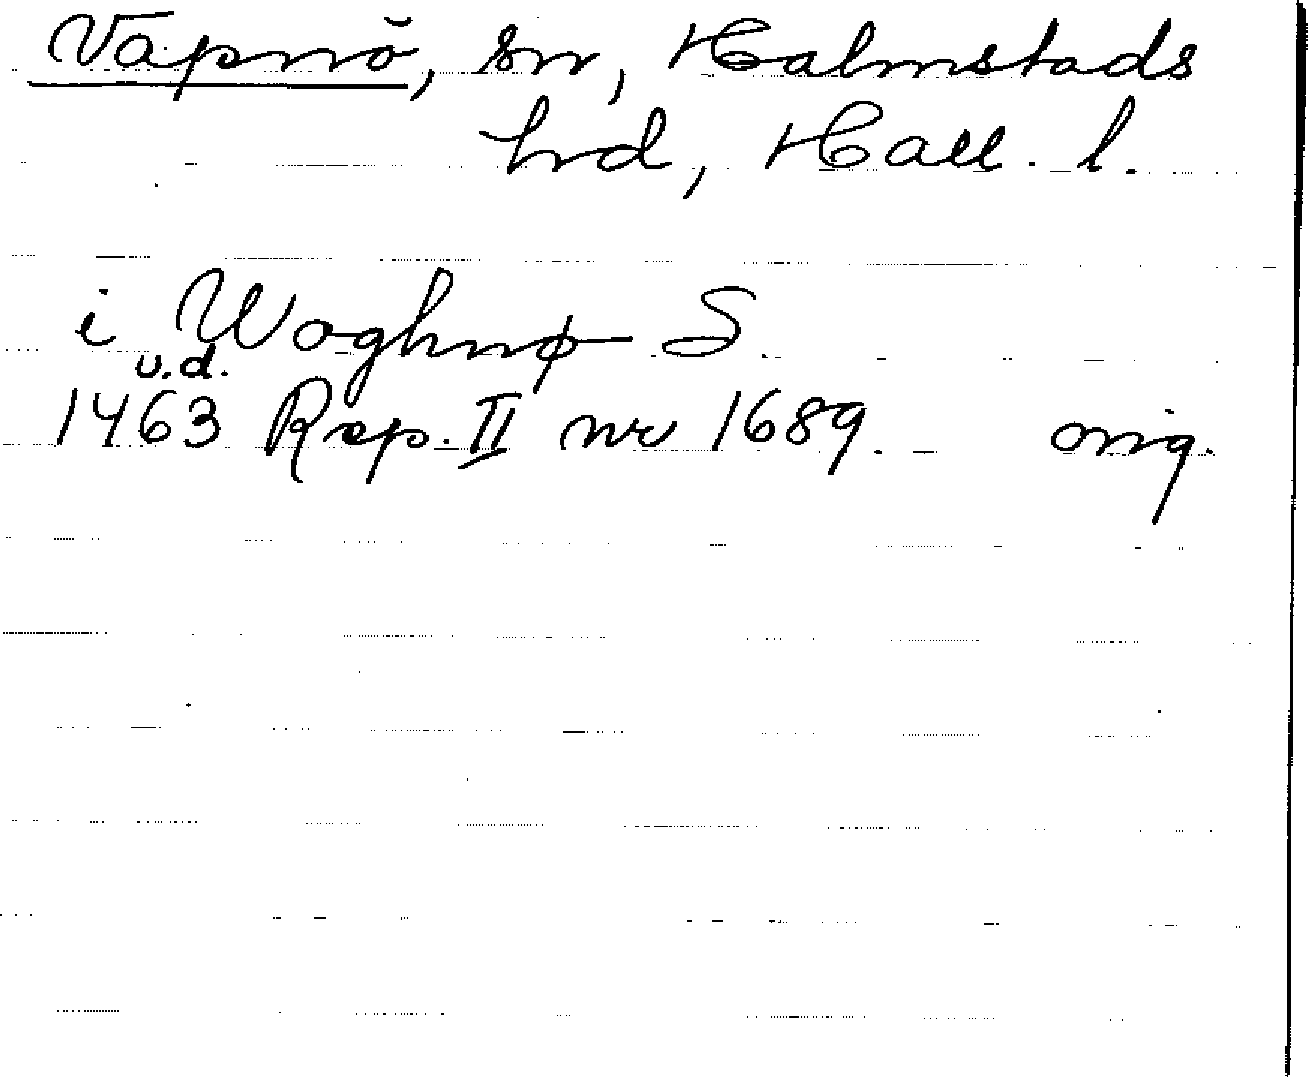 Vapnö, sn, Halmstads
hrd, Hall. l.
i Woghnø S
u.d.
1463 Rep. II nr 1689. orig.